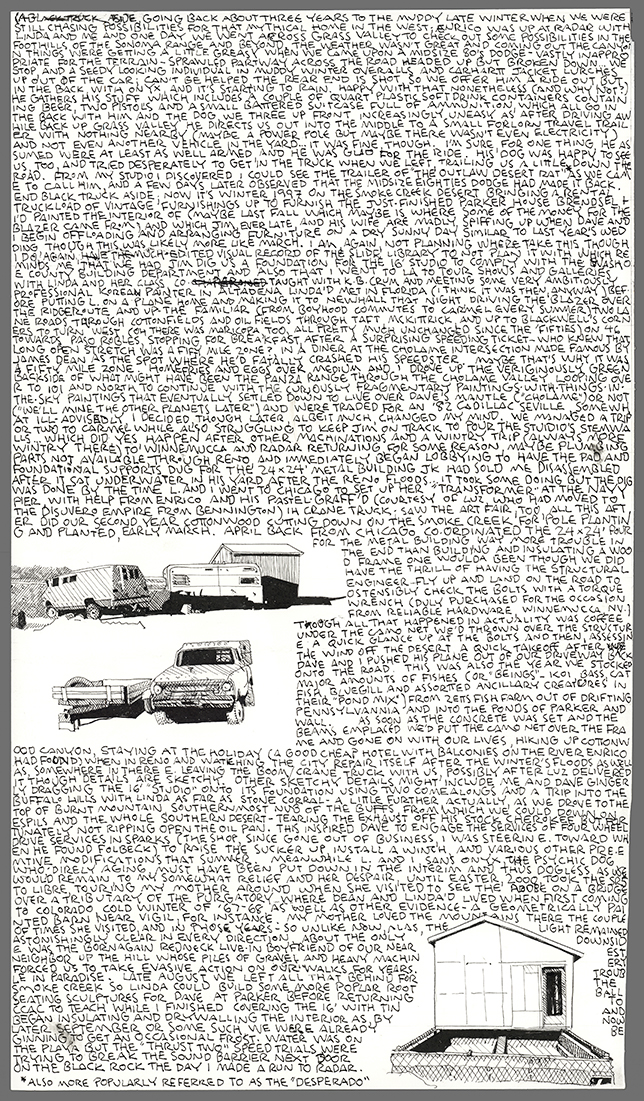 GOING BACK ABOUT THREE YEARS TO THE MUDDY LATE WINTER WHEN WE WERE
STILL CHASING POSSIBILITIES FOR THAT MYTHICAL HOME IN THE WEST, ENRICO WAS UP AT RADAR WITH
LINDA AND ME AND ONE DAY WE WENT ACROSS GRASS VALLEY TO CHECK OUT SOME POSSIBILITIES IN THE
FOOTHILLS OF THE SONOMA RANGE AND BEYOND. THE WEATHER WASN'T GREAT AND COMING OUT THE CANYO
N THINGS WERE GETTING A LITTLE GREASY WHEN WE CAME UPON A MIDSIZE 80S DODGE - VASTLY INAPPRO
PRIATE FOR THE TERRAIN - SPRAWLED PARTWAY ACROSS THE ROAD HEADED UP BUT BROKEN DOWN. WE
STOP AND A SEEDY LOOKING INDIVIDUAL IN MUDDY WINTER OVERALLS AND CARHARTT JACKET LURCHES
UP OUT OF THE CAR. CAN'T BE HELPED, THE REAR END IS SHOT, SO WE OFFER HIM A RIDE OUT
IN THE BACK, WITH ONYX, AND IT'S STARTING TO RAIN. HAPPY WITH THAT, NONETHELESS (AND WHY NOT?)
HE GATHERS HIS STUFF WHICH INCLUDES A COUPLE OF QUART PLASTIC SOFT DRINK CONTAINERS CONTAIN
ING BEER, TWO PISTOLS AND A SMALL BATTERED SUITCASE FULL OF AMMUNITION, WHICH ALL GO IN
THE BACK WITH HIM AND THE DOG, WE THREE UP FRONT, INCREASINGLY UNEASY AS AFTER DRIVING AW
HILE BACK UP GRASS VALLEY HE DIRECTS US OUT INTO THE MIDDLE TO A SMALL FORLORN TRAVEL TRAIL
ER WITH NOTHING NEARBY (MAYBE A POWER POLE BUT MAYBE THERE WASN'T EVEN ELECTRICITY)
AND NOT EVEN ANOTHER VEHICLE IN THE YARD... IT WAS FINE THOUGH. I'M SURE FOR ONE THING, HE AS
SUMED WE WERE AT LEAST AS WELL ARMED AND HE WAS GLAD FOR THE RIDE... HIS DOG WAS HAPPY TO SEE
US TOO, AND TRIED DESPERATELY TO GET IN THE TRUCK WHEN WE LEFT, TRAILING US A LITTLE DOWN THE
ROAD. FROM MY STUDIO I DISCOVERED I COULD SEE THE TRAILER OF "THE OUTLAW DESERT RAT" AS WE CAM
E TO CALL HIM, AND A FEW DAYS LATER OBSERVED THAT THE MIDSIZE EIGHTIES DODGE HAD MADE IT BACK.
END BLACK TRUCK ASIDE: NOW IT'S WINTER 1997 ON THE SMOKE CREEK DESERT BRINGING A RENTAL
TRUCKLOAD OF VINTAGE FURNISHINGS UP TO FURNISH THE JUST-FINISHED PARKER HOUSE (BRENDSEL +
I'D PAINTED THE INTERIOR OF (MAYBE LAST FALL WHICH MAYBE IS WHERE SOME OF THE MONEY FOR THE
BLAZER CAME FROM) AND WHICH JIM EVERLATE AND HIS WIFE ARE MADLY SPIFFING UP WHEN DAVE AND
I BEGIN OFFLOADING AND ARRANGING FURNITURE ON A DRY SUNNY DAY SIMILAR TO LAST YEAR'S WED
DING THOUGH THIS WAS LIKELY MORE LIKE MARCH. I AM AGAIN, NOT PLANNING WHERE TAKE THIS, THOUGH
I DO AGAIN, HAVE THE MUCH-EDITED VISUAL RECORD OF THE SLIDE LIBRARY TO NOT PLAN IT WITH, WHICH RE
MINDS ME THAT WE HAD JIM DIG US A FOUNDATION FOR THE 16' STUDIO TO COMPLY WITH THE WASHO
E COUNTY BUILDING DEPARTMENT, AND ALSO THAT I WENT TO LA TO TOUR SHOWS AND GALLERIES
WITH LINDA AND HER CLASS, CO TAUGHT WITH K.B. CRUM AND MEETING SOME VERY AMBITIOUS
PROFESSIONAL KOREAN PAINTER IN ALTADENA. LINDA'D MET IN FLORIDA (I THINK IT WAS THEN ANYWAY) BEF
ORE PUTTING L ON A PLANE HOME AND MAKING IT TO NEWHALL THAT NIGHT, DRIVING THE BLAZER OVER
THE RIDGEROUTE AND UP THE FAMILIAR (FROM BOYHOOD COMMUTES TO CARMEL EVERY SUMMER) TWO LA
NE ROADS THROUGH COTTONFIELDS AND OIL FIELDS THROUGH TAFT, MCKITTRICK, AND UP TO BLACKWELL'S CORN
ERS TO TURN WEST (OH THERE WAS MARICOPA TOO, ALL PRETTY MUCH UNCHANGED SINCE THE FIFTIES) ON 46
TOWARDS PASO ROBLES, STOPPING FOR BREAKFAST AFTER A SURPRISING SPEEDING TICKET - WHO KNEW THAT
LONG OPEN STRETCH WAS A FIFTY MILE ZONE? - IN A DINER AT THE CHOLAME INTERSECTION MADE FAMOUS BY
JAMES DEAN AS THE SPOT WHERE HE'D FATALLY CRASHED HIS SPEEDSTER. MAYBE THAT'S WHY IT WAS
A FIFTY MILE ZONE. HOMEFRIES AND EGGS OVER MEDIUM AND I DROVE UP THE VERIGINOUSLY GREEN
BACKSIDE OF WHAT MIGHT HAVE BEEN THE PANZA RANGE THROUGH THE CHOLAME VALLEY, LOOPING OVE
R TO 101 AND NORTH TO CONTINUE WITH THE CURIOUSLY FRAGMENTARY PAINTINGS WITH THINGS IN
THE SKY PAINTINGS THAT EVENTUALLY SETTLED DOWN TO LIVE OVER DAVE'S MANTLE ("CHOLAME") OR NOT
("WE'LL MINE THE OTHER PLANETS LATER") AND WERE TRADED FOR AN '82 CADILLAC SEVILLE. SOMEWH
AT ILL-ADVISEDLY, I DECIDED THOUGH LATER, ALBEIT MUCH CHANGED MY MIND. WE MANAGED A TRIP
OR TWO TO CARMEL WHILE ALSO STRUGGLING TO KEEP JIM ON TRACK TO POUR THE STUDIO'S STEMWA
LLS, WHICH DID YES HAPPEN AFTER OTHER MACHINATIONS AND A WINTRY TRIP (ALWAYS MORE
WINTRY THERE) TO WINNEMUCCA AND RADAR RETURNING FOR SOME REASON, MAYBE PLUMBING
PARTS NOT AVAILABLE THROUGH RENO AND IMMEDIATELY BEGAN LOBBYING TO HAVE THE PAD AND
FOUNDATIONAL SUPPORTS DUG FOR THE 24X24 METAL BUILDING JK HAD SOLD ME DISASSEMBLED
AFTER IT SAT UNDERWATER IN HIS YARD AFTER THE RENO FLOODS... IT TOOK SOME DOING BUT THE DIG
WAS DONE BY THE TIME L. AND I WENT TO CHICAGO TO SET UP HER "TRANSFORMER" AT THE NAVY
PIER WITH HELP FROM ENRICO AND HIS PASTEL GRAFFITI'D (COURTESY OF LUZ, WHO HAD MOVED TO
THE DISUVERO EMPIRE FROM BENNINGTON) IH CRANE TRUCK; SAW THE ART FAIR, TOO. ALL THIS AFT,
ER DID OUR SECOND YEAR COTTONWOOD CUTTING DOWN ON THE SMOKE CREEK, FOR POLE PLANTIN
G AND PLANTED, EARLY MARCH. APRIL BACK FROM CHICAGO CO-ORDINATED THE 24X24 POUR
FOR THE METAL BUILDING WAY MORE TROUBLE IN
THE END THAN BUILDING AND INSULATING A WOO
D FRAME ONE WOULDA BEEN THOUGH WE DID
HAVE THE THRILL OF HAVING THE STRUCTURAL
ENGINEER FLY UP AND LAND ON THE ROAD TO
OSTENSIBLY CHECK THE BOLTS WITH A TORQUE
WRENCH (DULY PURCHASED FOR THE OCASION
FROM RELIABLE HARDWARE, WINNEMUCCA, NV.)
THOUGH ALL THAT HAPPENED IN ACTUALITY WAS COFFEE
UNDER THE CAMO NET WE'D THROWN OVER THE STRUCTUR
E, A QUICK GLANCE UP AT THE BOLTS AND THEN, ASSESSIN
G THE WIND OFF THE DESERT, A QUICK TAKEOFF AFTER
DAVE AND I PUSHED HIS PLANE OUT OF OUR DRIVEWAY BACK
ONTO THE ROAD. THIS WAS ALSO THE YEAR WE STOCKED
MAJOR AMOUNTS OF FISHES (OR "BEINGS" - KOI, BASS, CAT
FISH, BLUEGILL AND ASSORTED ANCILLARY CREATURES IN
THEIR "POND MIX") FROM ZETTS FISH FARM OUT OF DRIFTING
PENNSYLVANIA, AND INTO THE PONDS OF PARKER AND
WALL. AS SOON AS THE CONCRETE WAS SET AND THE
BEAMS EMPLACED WE'D PUT THE CAMO NET OVER THE FRA
ME AND GONE ON WITH OUR LIVES, HIKING UP COTTONW
OOD CANYON, STAYING AT THE HOLIDAY (A GOOD CHEAP HOTEL WITH BALCONIES ON THE RIVER ENRICO
HAD FOUND) WHEN IN RENO AND WATCHING THE CITY REPAIR ITSELF AFTER THE WINTER'S FLOODS AS WELL
AS, SOMEWHERE IN THERE E. LEAVING THE BOOM CRANE TRUCK WITH US, POSSIBLY AFTER LUZ DELIVERED
IT THOUGH DETAILS ARE SKETCHY. OTHER SKETCHY DETAILS MIGHT INCLUDE ME AND DAVE GINGER
LY DRAGGING THE 16' "STUDIO" ONTO ITS FOUNDATION USING TWO COMEALONGS AND A TRIP INTO THE
BUFFALO HILLS WITH LINDA AS FAR AS STONE CORRAL - A LITTLE FURTHER, ACTUALLY, AS WE DROVE TO THE
TOP OF BURNT MOUNTAIN, SOUTHERNMOST NUB OF THE BUFFS, FROM WHICH WE COULD LOOK DOWN ON
ESPILS AND THE WHOLE SOUTHERN DESERT - TEARING THE EXHAUST OFF HIS STOCK CHEROKEE AND FOR
TUNATELY NOT RIPPING OPEN THE OIL PAN. THIS INSPIRED DAVE TO ENGAGE THE SERVICES OF FOUR WHEEL
DRIVE SERVICES IN SPARKS (THE SHOP, SINCE GONE OUT OF BUSINESS, I WAS STEERIN E. TOWARD WH
EN HE FOUND FOLBECK) TO RAISE THE SUCKER UP, INSTALL A WINTH, AND VARIOUS OTHER PREE
MTIVE MODIFICATIONS THAT SUMMER. MEANWHILE L. AND I, SANS ONYX, THE PSYCHIC DOG
WHO, DIRELY AGING, MUST HAVE BEEN PUT DOWN IN THE INTERIM AND THUS DOGLESS AS WE
WOULD REMAIN TO MY SOMEWHAT RELIEF AND HER DESPAIR UNTIL EASTER 2000 TOOK THE S
TO LIBRE, TOURING MY MOTHER AROUND WHEN SHE VISITED TO SEE THE ADOBE ON A GRUDGE
OVER A TRIBUTARY OF THE PURGATORY - WHERE DEAN AND LINDA'D LIVED WHEN FIRST COMING
TO COLORADO COLD WINTER OF '67-'68, AS WELL AS OTHER EVIDENCE - A GEOMETRICALLY PAI
NTED BARN NEAR VIGIL, FOR INSTANCE. MY MOTHER LOVED THE MOUNTAINS THERE THE COUPLE
OF TIMES SHE VISITED, AND IN THOSE YEARS - SO UNLIKE NOW, ALAS, THE LIGHT REMAINED
ASTONISHINGLY CLEAR IN EVERY DIRECTION. ABOUT THE ONLY DOWNSID
E WAS THE BORN AGAIN REDNECK LIVE-IN BOYFRIEND OF OUR NEAR EST
NEIGHBOR UP THE HILL WHOSE PILES OF GRAVEL AND HEAVY MACHIN ERY
FORCED US TO TAKE EVASIVE ACTION ON OUR WALKS FOR YEARS. TROUB
LE IN PARADISE. LATE AUGUST WE LEFT ALL THAT BEHIND FOR THE
SMOKE CREEK SO LINDA COULD BUILD SOME MORE POPLAR ROOT BALL
SEATING SCULPTURES FOR DAVE AT PARKER BEFORE RETURNING TO
CCAC TO TEACH WHILE I FINISHED COVERING THE 16' WITH TIN AND
BEGAN INSULATING AND DRYWALLING THE INTERIOR AS BY NOW
LATER SEPTEMBER OR SOME SUCH WE WERE ALREADY BE
GINNING TO GET AN OCCASIONAL FROST. WATER WAS ON
THE PLAYA BUT THE "THRUST TWO" SPEED TRIALS WERE
TRYING TO BREAK THE SOUND BARRIER NEXT DOOR
ON THE BLACK ROCK THE DAY I MADE A RUN TO RADAR.
*ALSO MORE POPULARLY REFERRED TO AS THE "DESPERADO"